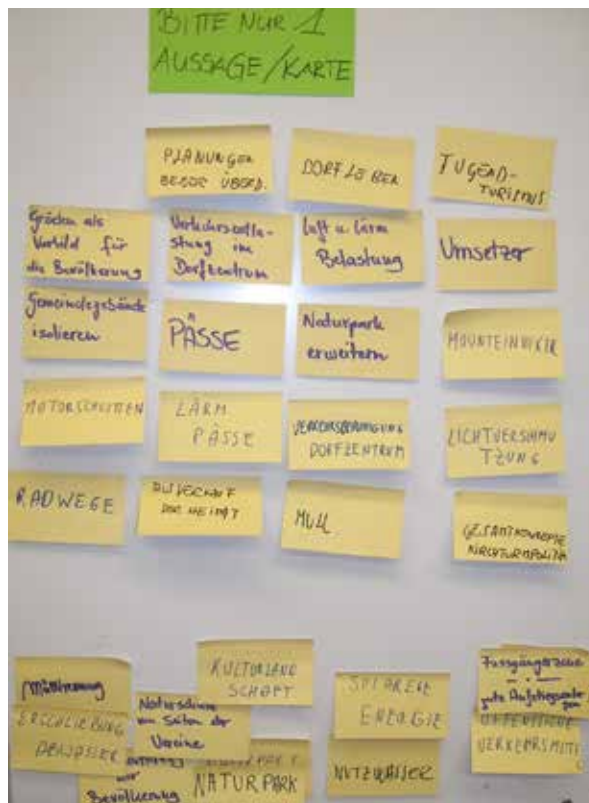 BITTE NUR 1
AUSSAGE/KARTE
PLANUNGEN
BESSER ÜBERD.
DORFLEBEN
TUGEND-
TURISMUS
Gröden als
Vorbild für
die Bevölkerung
Verkehrsbela-
stung im
Dorfzentrum
Luft u. Lärm
Belastung
Umsetzer
Gemeindegebäude
isolieren
PÄSSE
Naturpark
erweitern
MOUNTEINBIKER
MOTORSCHLITTEN
LÄRM
PÄSSE
VERKEHRSBERUHIGUNG
DORFZENTRUM
LICHTVERSHMU
TZUNG
RADWEGE
AUSVERKAUF
DER HEIMAT
MÜLL
GESAMTKONZEPTE
KIRCHTURMPOLITIK
Mülltrennung
KULTURLAND
SCHAFT
SOLARE
ENERGIE
Fussgängerzone
gute
ERSCHLIEßUNG
ABWASSER
Naturschutz
von Seiten der
Vereine
ÖFFENTLICHE
VERKEHRSMITTEL
NATURPARK
NUTZWASSER
Bevölkerung